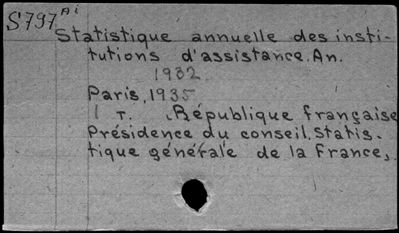 S797 Ai
Statistique annuelle des insti-
tutions d'assistance. An.
1932
Paris, 1935
1 т. République française
Présidence du conseil. Statis-
tique générale de la France.